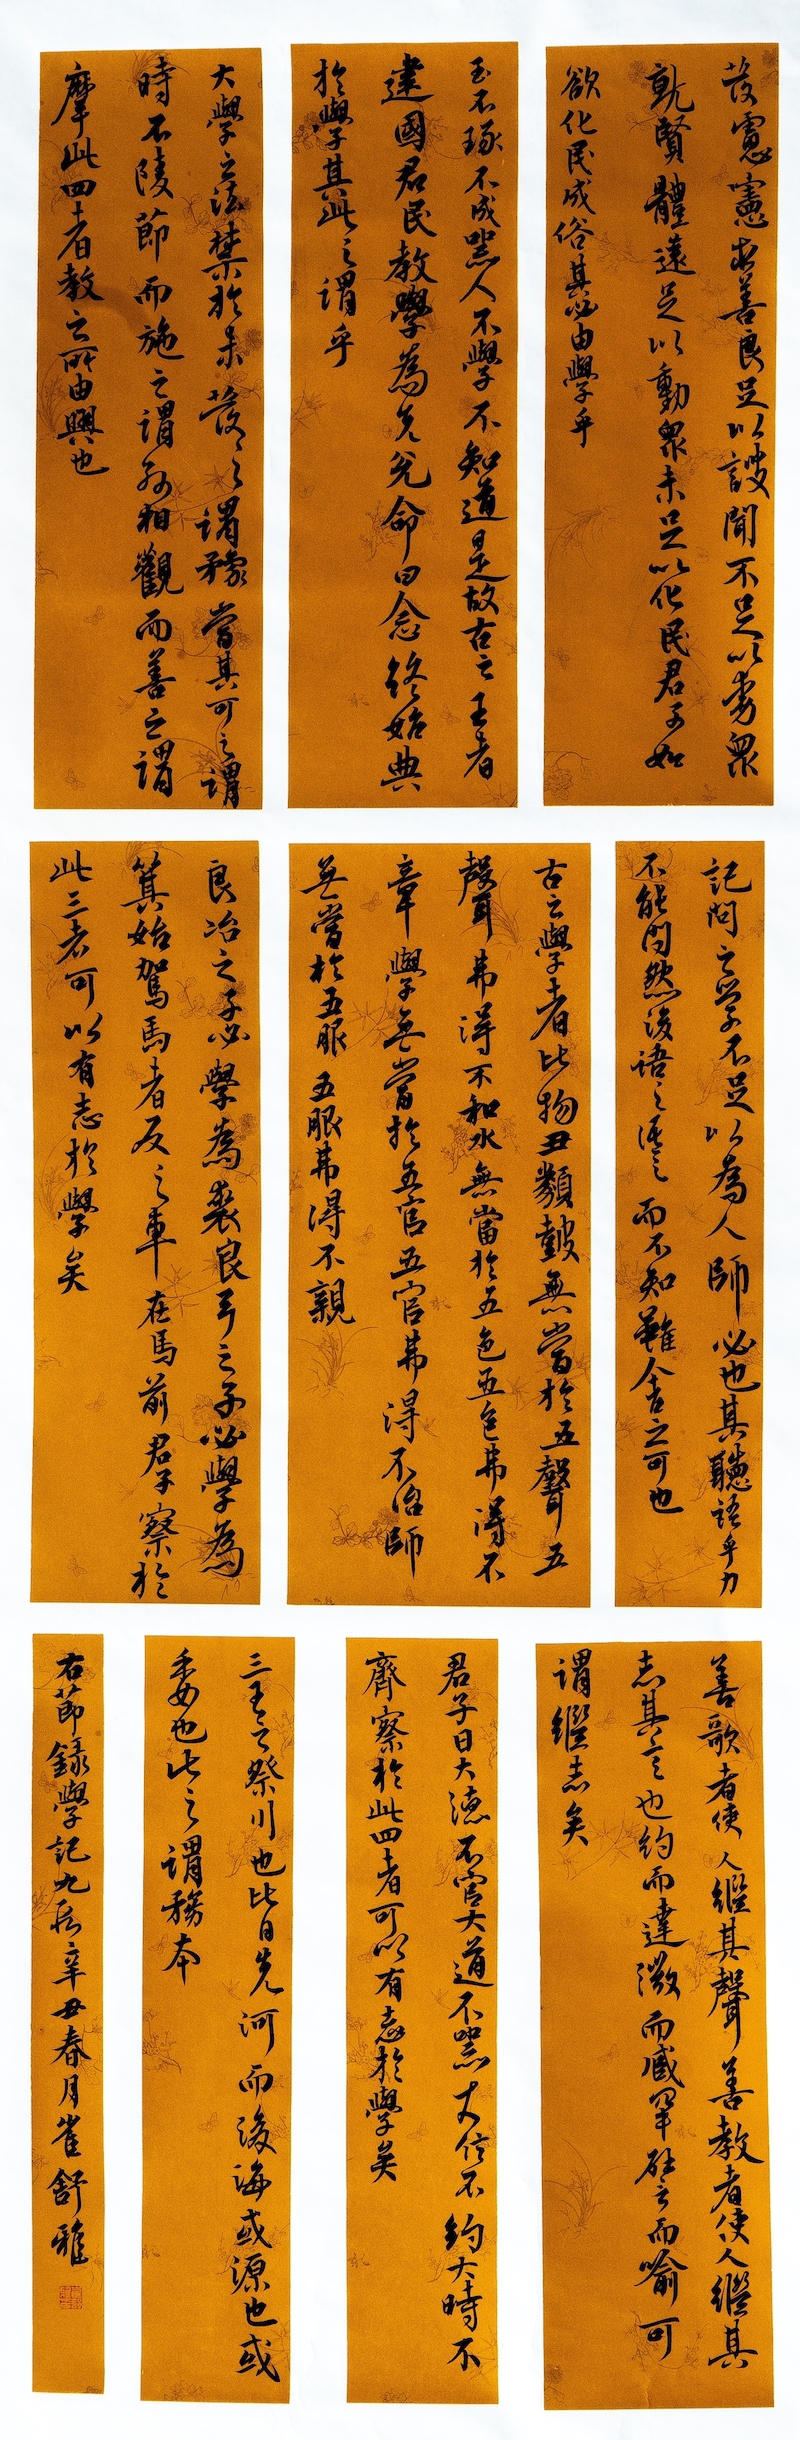 發慮憲求善良足以謏聞不足以動眾
就賢體遠足以動眾未足以化民君子如
欲化民成俗其必由學乎
玉不琢不成器人不學不知道是故古之王者
建國君民教學為先兌命曰念終始典
於學其此之謂乎
大學之法禁於未發之謂豫當其可之謂
時不陵節而施之謂孫相觀而善之謂
摩此四者教之所由興也
記問之学不足以為人師必也其聽語乎力
不能問然後語之語之而不知雖舍之可也
古之學者比物丑類鼓無當於五聲五
聲弗得不和水無當於五色五色弗得不
章學無當於五官五官弗得不治師
無當於五服五服弗得不親
良冶之子必學為裘良弓之子必學為
箕始駕馬者反之車在馬前君子察於
此三者可以有志於學矣
善歌者使人繼其聲善教者使人繼其
志其言也約而達微而臧罕譬而喻可
謂繼志矣
君子曰大德不官大道不器大信不約大時不
齊察於此四者可以有志於學矣
三王之祭川也皆先河而後海或源也或
委也此之謂務本
右節錄學記九段辛丑春月崔舒雅